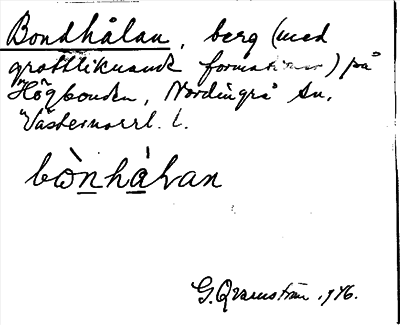 Bondhålan, berg (med
grottliknande formationer) på
Högbonden, Nordingrå sn,
Västernorrl. l.
bònhålan
G. Qvarnström 1946.